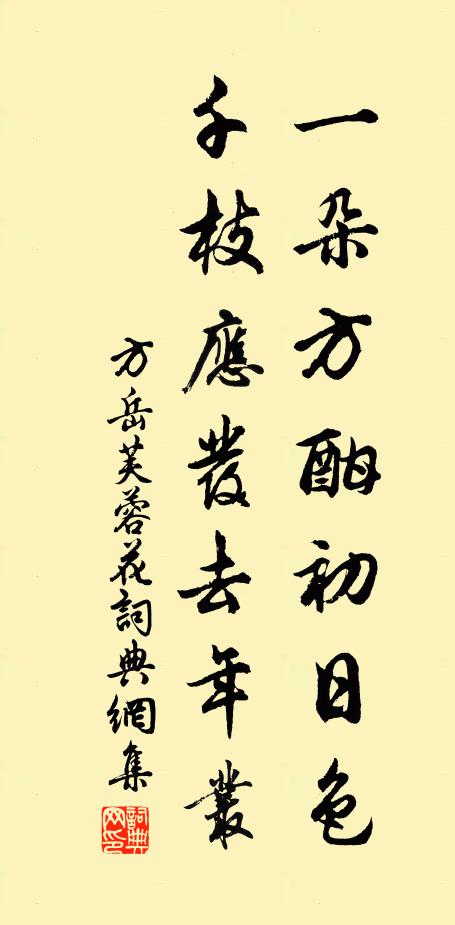 一朵方酣初日色
千枝應發去年叢
方岳芙蓉花詞典網集
詞典網印